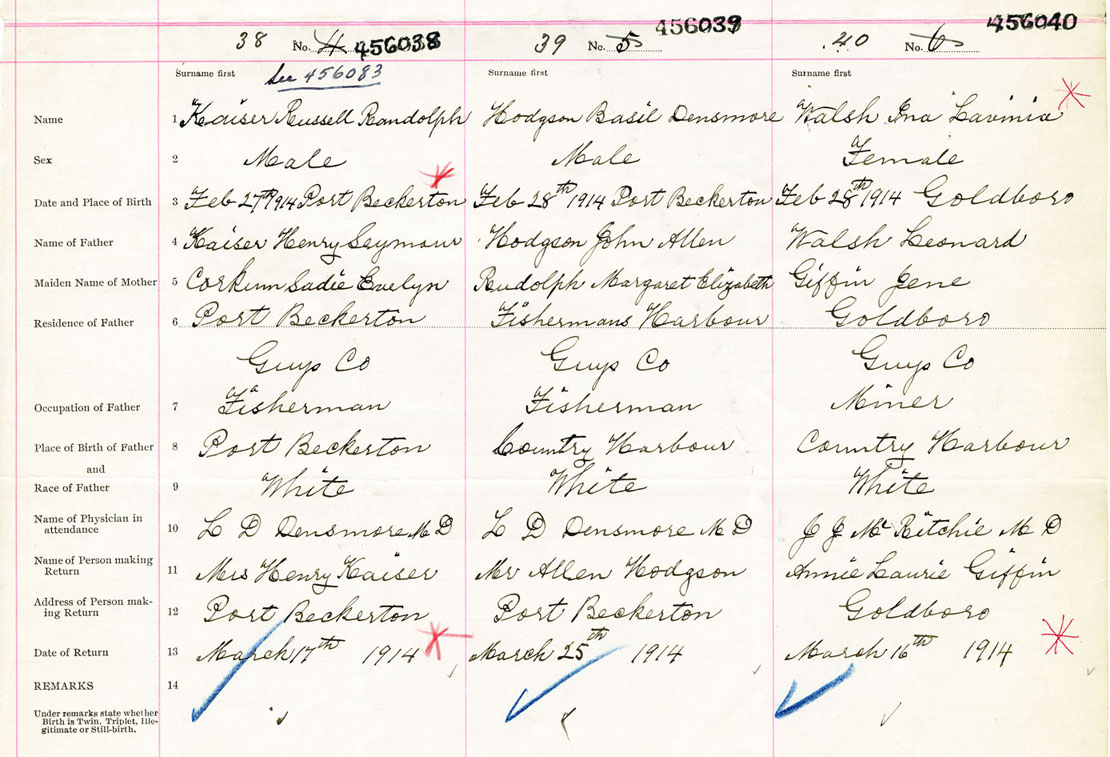 38 No. 4 456038 39 No. 5 456039 40 No. 6 456040
Surname first Surname first Surname first
See 456083
Name 1 Kaiser Russell Randolph Hodgson Basil Densmore Walsh Ina Lavinia
Sex 2 Male Male Female
Date and Place of Birth 3 Feb 27th 1914 Port Beckerton Feb 28th 1914 Port Beckerton Feb 28th 1914 Goldboro
Name of Father 4 Kaiser Henry Seymour Hodgson John Allen Walsh Leonard
Maiden Name of Mother 5 Corkum Sadie Evelyn Rudolph Margaret Elizabeth Giffin Jene
Residence of Father 6 Port Beckerton Fishermans Harbour Goldboro
Guys Co Guys Co Guys Co
Occupation of Father 7 Fisherman Fisherman Miner
Place of Birth of Father 8 Port Beckerton Country Harbour Country Harbour
and
Race of Father 9 White White White
Name of Physician in
attendance 10 L D Densmore M D L D Densmore M D J J Mc Ritchie M D
Name of Person making
Return 11 Mrs Henry Kaiser Mr Allen Hodgson Annie Laurie Giffin
Address of Person mak-
ing Return 12 Port Beckerton Port Beckerton Goldboro
Date of Return 13 March 17th 1914 March 25th 1914 March 16th 1914
REMARKS 14
Under remarks state whether
Birth is Twin, Triplet, Ille-
gitimate or Still-birth.